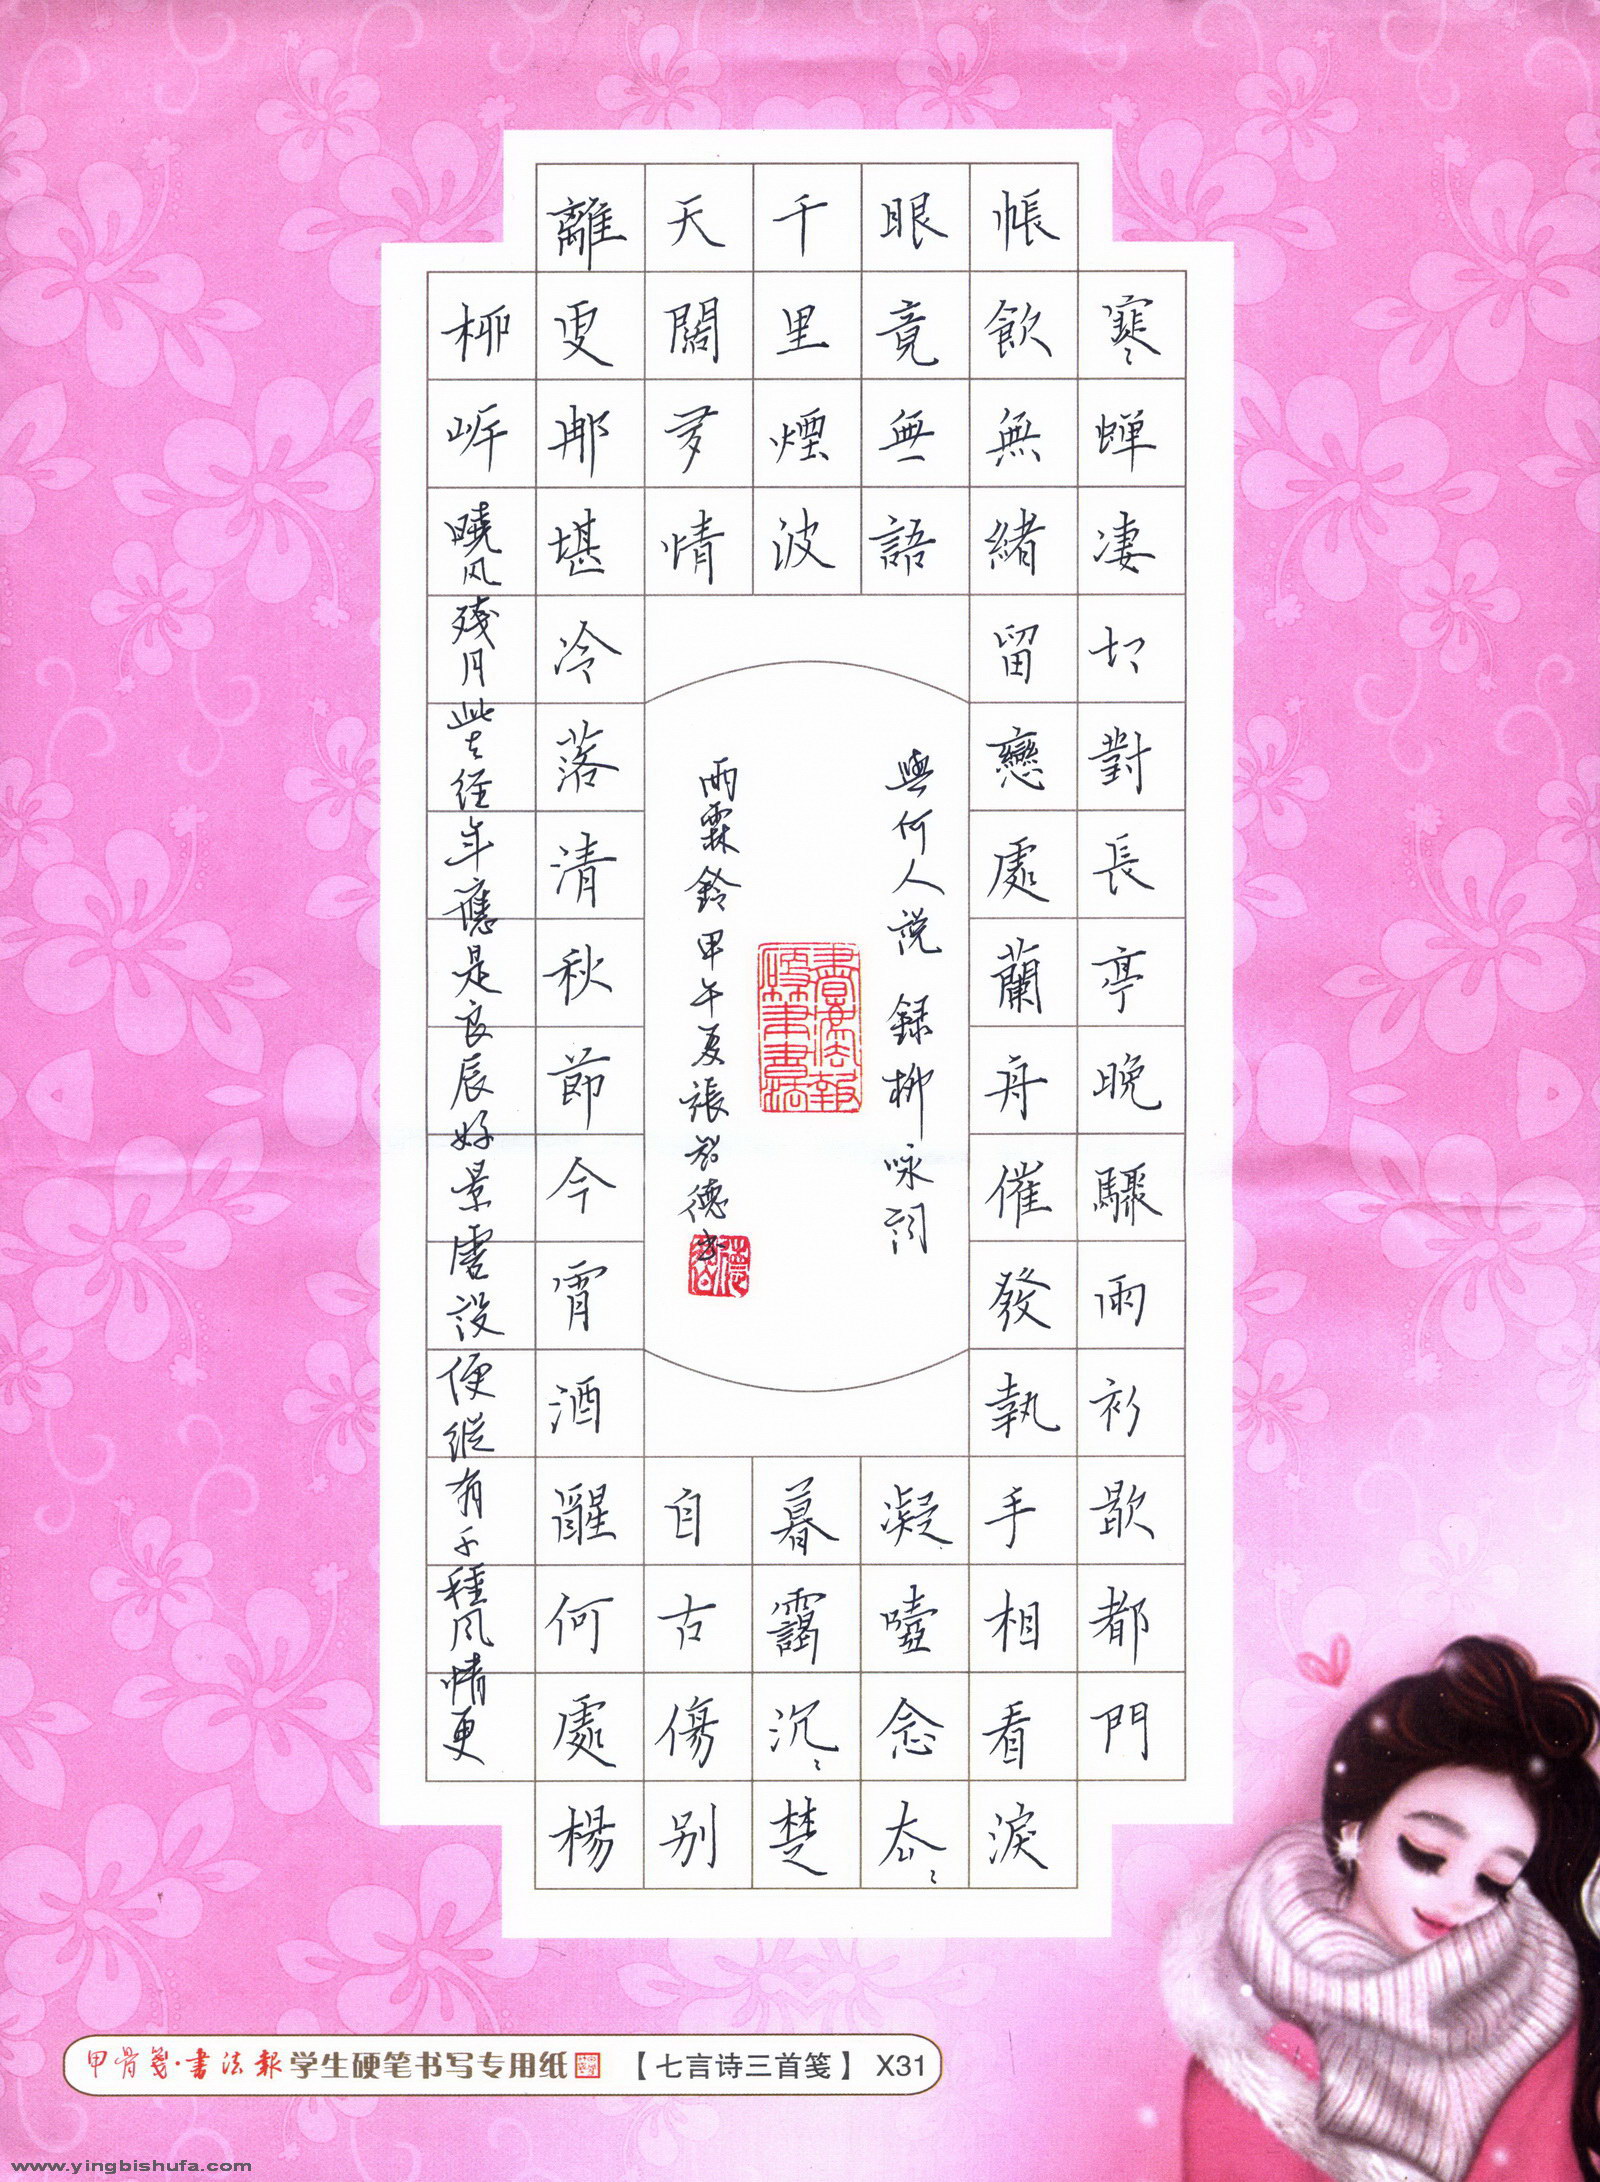 寒々蝉凄切對長亭晚驟雨初歇都門
帳飲無緒留戀處蘭舟催發執手相看淚
眼竟無語凝噎念去々
千里煙波暮靄沉々楚
天闊多情自古傷別
離更那堪冷落清秋節今宵酒醒何處楊
柳岸曉风殘月此去經年應是良辰好景虛設便縱有千種风情更
與何人説 録柳咏詞
書法報
硬筆書法
雨霖鈴甲午夏張智德书
智德
甲骨箋·書法報学生硬笔书写专用纸 【七言诗三首笺】 X31
www.yingbishufa.com